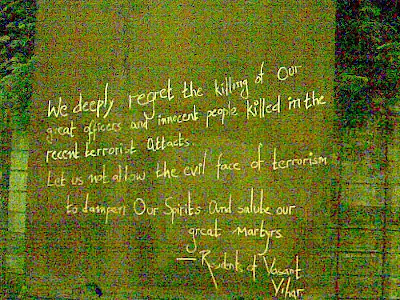 We deeply regret the killing of Our
great officers and innocent people killed in the
recent terrorist attacks.
Let us not allow the evil face of terrorism
to dampen Our Spirits and salute our
great Martyrs
— Residents of Vasant
Vihar